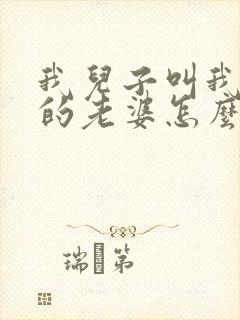 我兒子叫我
的老婆怎麼
瑞 第